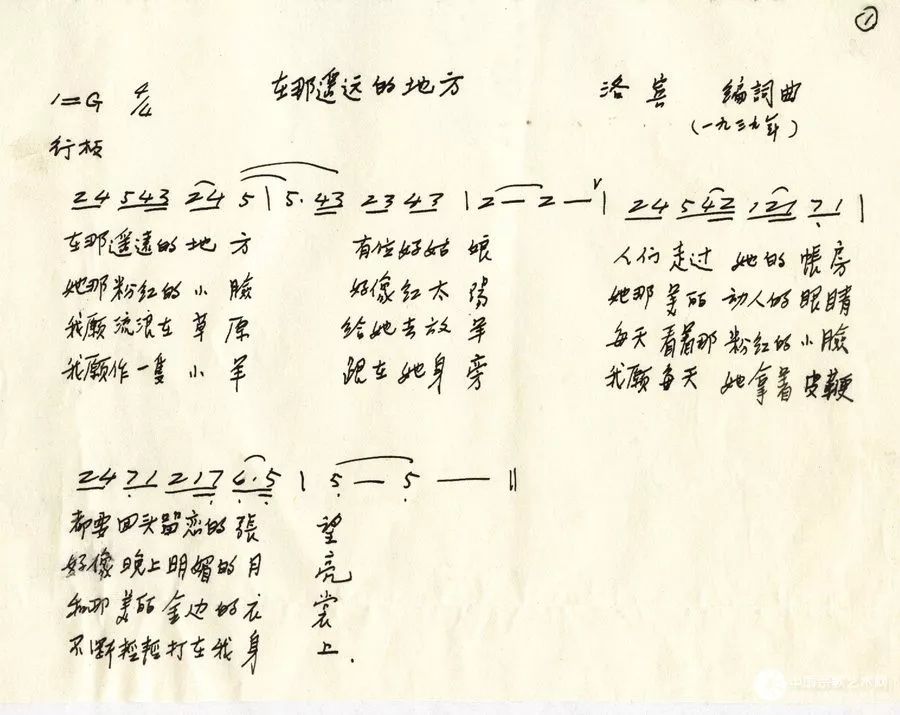 ①
在那遥远的地方
1=G 4/4
洛宾 编詞曲
(一九三九年)
行板
24 543 24 5 | 5. 43 23 43 | 2 — 2 — V | 24 542 121 71 |
在那遥遠的地方 有位好姑娘 人们走过她的帳房
她那粉红的小臉 好像红太陽 她那美丽动人的眼睛
我願流浪在草原 给她去放羊 每天看着那粉红的小臉
我願作一隻小羊 跟在她身旁 我願每天她拿着皮鞭
24 71 217 6.5 | 5 — 5 — ||
都要回头留恋的張望
好像晚上明媚的月亮
和那美丽金边的衣裳
不断輕輕打在我身上.
中国宗教艺术网